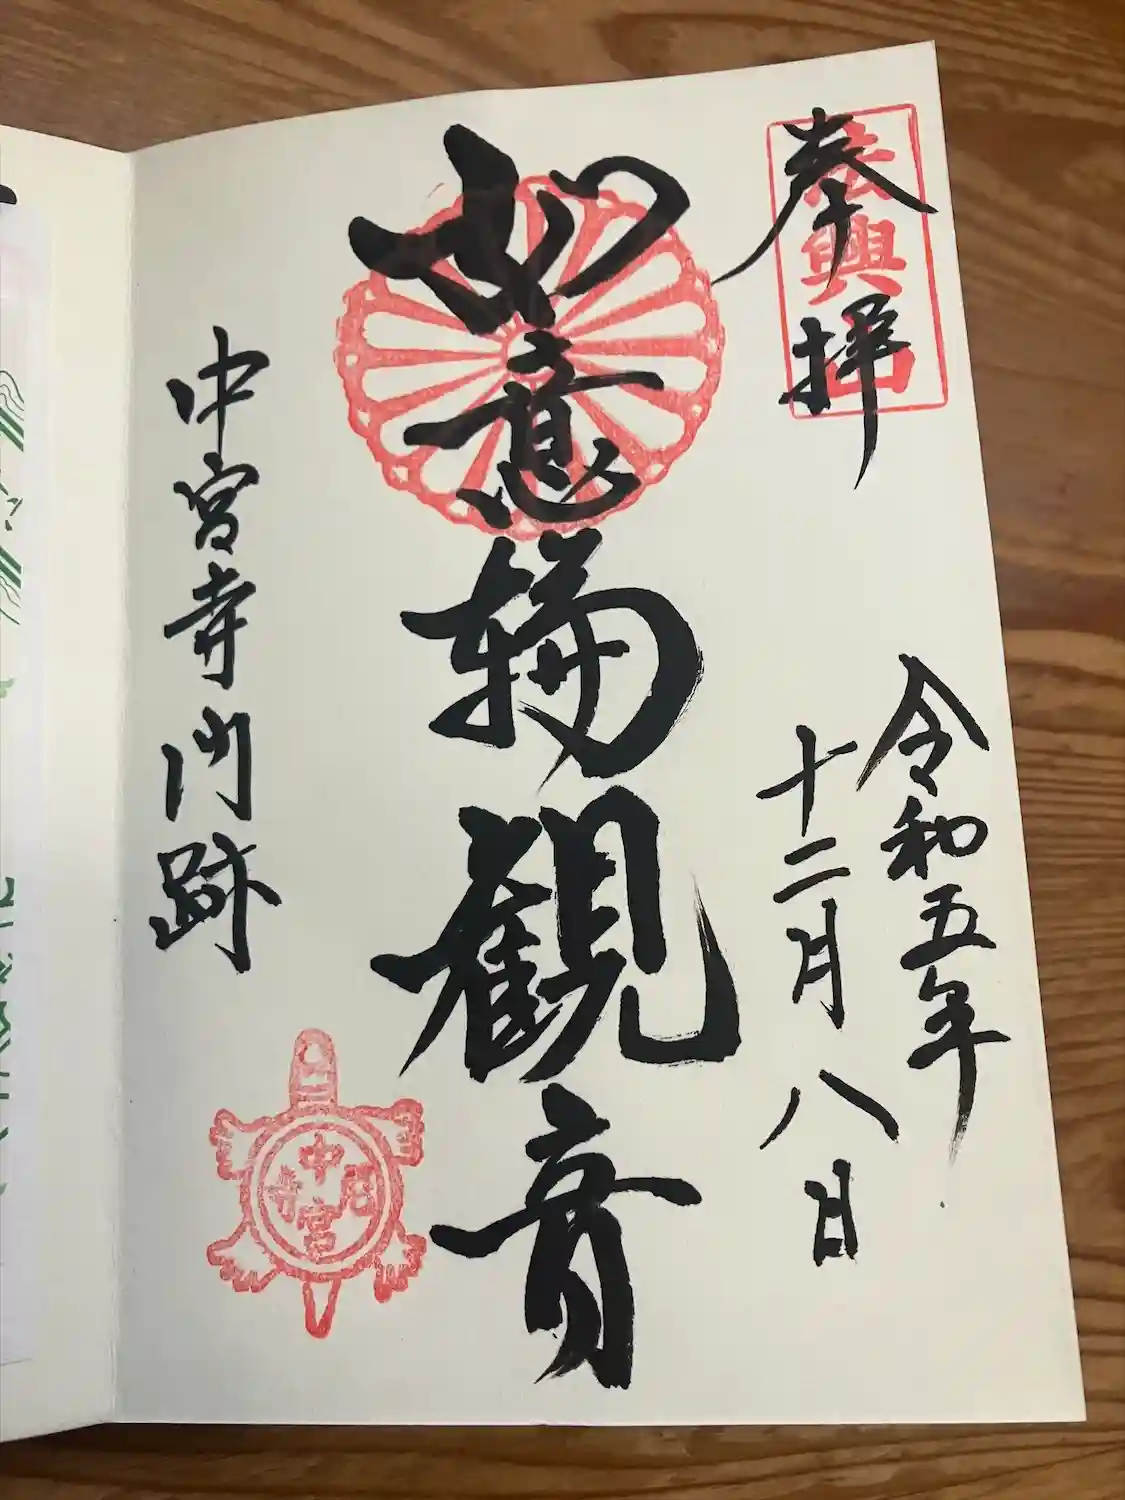 奉拝
法興山
令和五年
十二月八日
如意輪観音
中宮寺門跡
中宮寺印